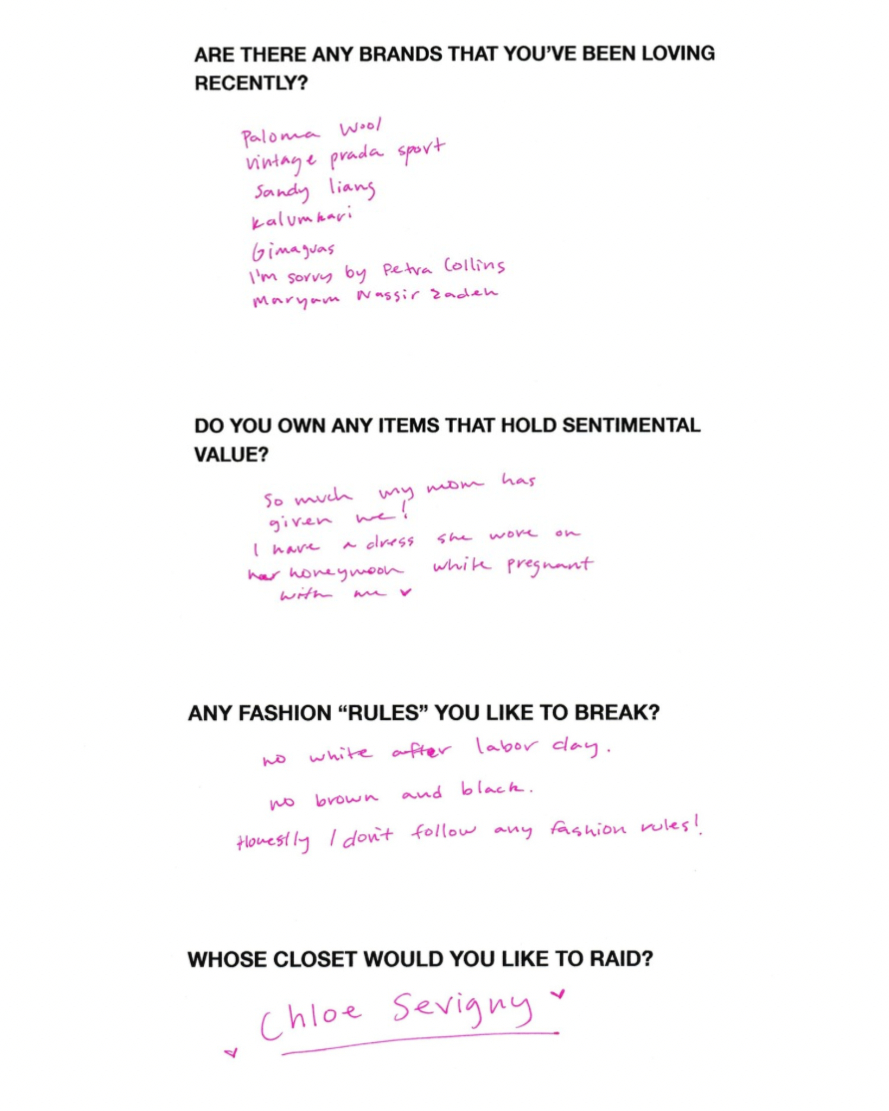 ARE THERE ANY BRANDS THAT YOU’VE BEEN LOVING
RECENTLY?
Paloma Wool
vintage prada sport
Sandy liang
kalumkari
Gimaguas
I'm sorry by Petra Collins
Maryam Nassir Zadeh
DO YOU OWN ANY ITEMS THAT HOLD SENTIMENTAL
VALUE?
So much my mom has
given me!
I have a dress she wore on
her honeymoon while pregnant
with me ♥
ANY FASHION “RULES” YOU LIKE TO BREAK?
no white after labor day.
no brown and black.
Honestly I don't follow any fashion rules!
WHOSE CLOSET WOULD YOU LIKE TO RAID?
Chloe Sevigny ♥
♥